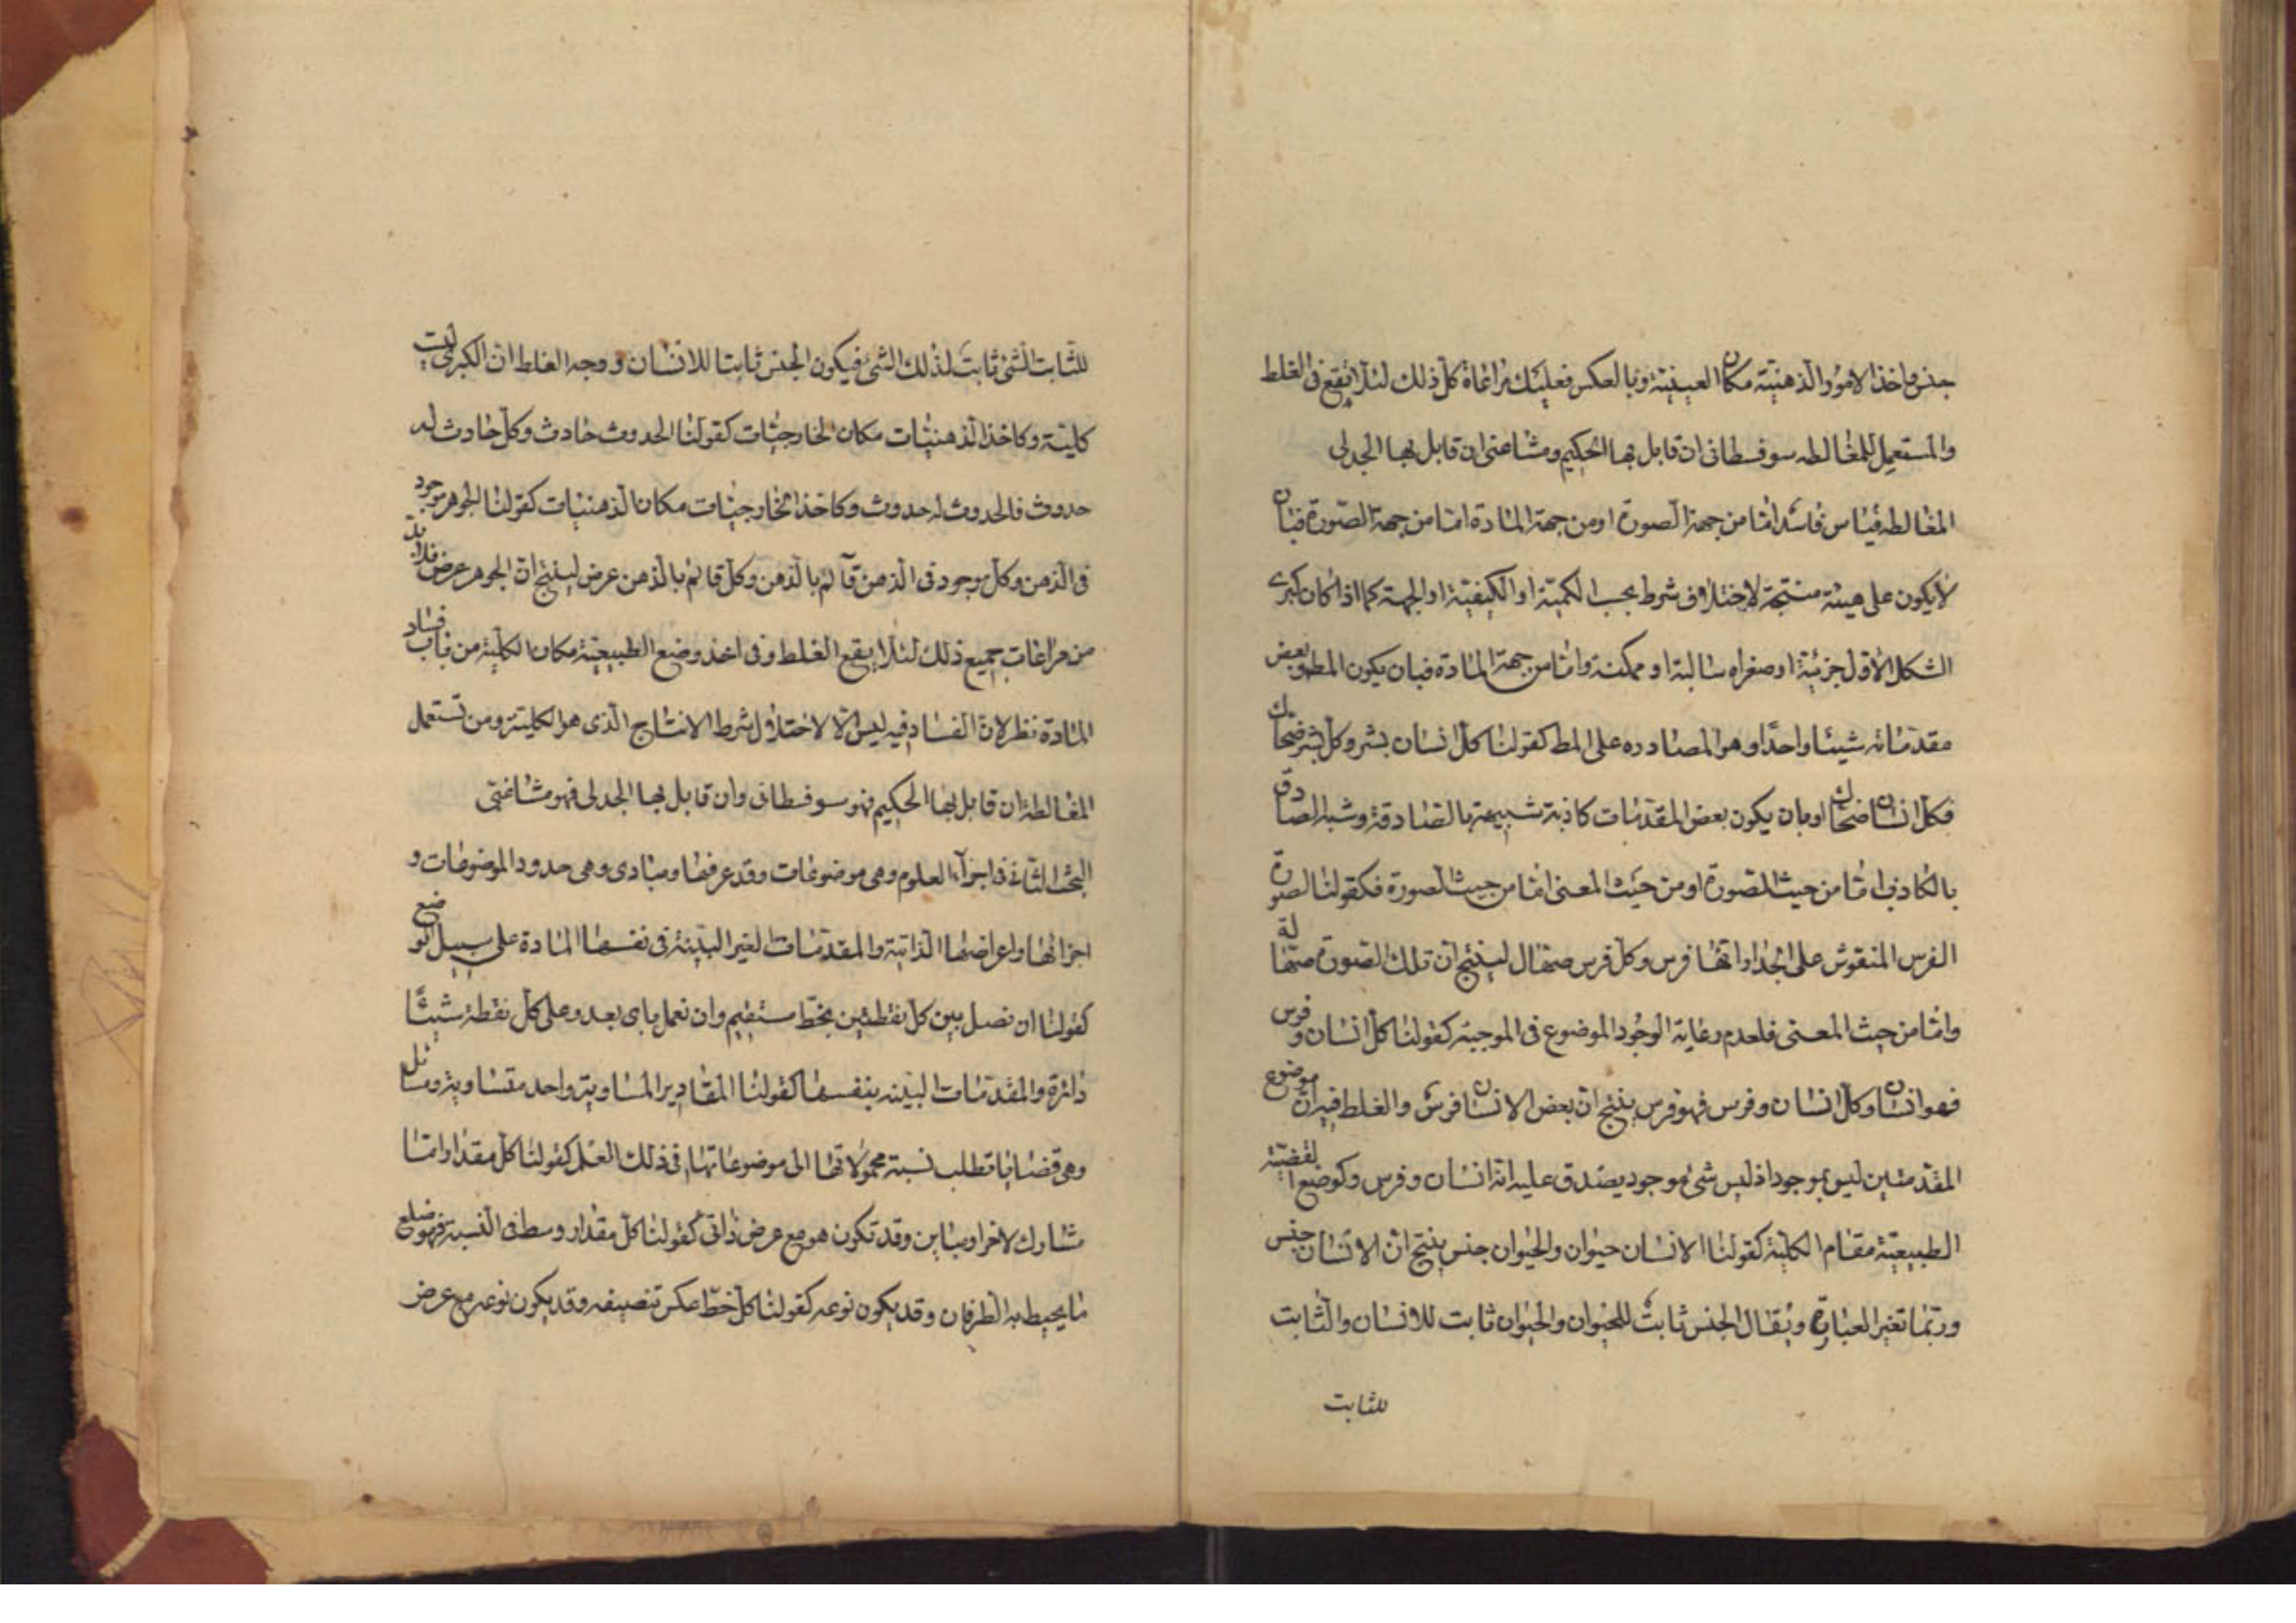 جنس واخذ الامور الذهنية مكان العينية وبالعكس فعليك بمراعاة كل ذلك لئلا يقع فى الغلط
والمستعمل للمغالطه سوفسطائى ان قابل بها الحكيم ومشاغبى ان قابل بها الجدلى
المغالطه قياس فاسد امّا من جهة الصورة او من جهة المادة امّا من جهة الصّورة فبان
لا يكون على هيئة منتجة لاختلاف شرط بحسب الكمية او الكيفية او الجهة كما اذا كان كبرى
الشكل الاول جزئية او صغراه سالبة او ممكنة وامّا من جهة المادة فبان يكون المطو بعض
مقدّماته شيئا واحدًا وهو المصادره على المط كقولنا كل انسان بشر وكل بشر ضحاك
فكل انسان ضحاك او بان يكون بعض المقدّمات كاذبة شبيهة بالصّادقة وشبه الصادق
بالكاذب امّا من حيث الصورة او من حيث المعنى امّا من حيث الصورة فكقولنا لصورة
الفرس المنقوش على الجدار انها فرس وكل فرس صهّال لينتج ان تلك الصّورة صهالة
وامّا من حيث المعنى فلعدم رعاية الوجود الموضوع فى الموجبة كقولنا كل انسان وفرس
فهو انسان وكل انسان وفرس فهو فرس ينتج ان بعض الانسان فرس والغلط فيه ان موضوع
المقدّمتين ليس بموجود اذ ليس شئ موجود يصدق عليه انه انسان وفرس وكوضع القضية
الطبيعيّة مقام الكلية كقولنا الانسان حيوان والحيوان جنس ينتج ان الانسان جنس
وربّما تغير العبارة ويقال الجنس ثابت للحيوان والحيوان ثابت للانسان والثابت
للثابت
للثّابت الشئ ثابت لذلك الشئ فيكون الجنس ثابتا للانسان ووجه الغلط ان الكبرى ليت
كلية وكاخذ الذهنيّات مكان الخارجيّات كقولنا الحدوث حادث وكل حادث له
حدوث فالحدوث له حدوث وكاخذ الخارجيّات مكان الذهنيات كقولنا الجوهر موجود
فى الذهن وكل موجود فى الذهن قآئم بالذهن وكل قائم بالذهن عرض لينتج ان الجوهر عرض فلابد
من مراعات جميع ذلك لئلا يقع الغلط وفى اخذ وضع الطبيعية مكان الكلية من باب فساد
المادة نظر لان الفساد فيه ليس الا لاختلال شرط الانتاج الّذى هو الكلية ومن تستعمل
المغالطة ان قابل بها الحكيم فهو سوفسطائى وان قابل بها الجدلى فهو مشاغبى
البحث الثانى فى اجزآء العلوم وهى موضوعات وقد عرفتها ومبادى وهى حدود الموضوعات و
اجزائها واعراضها الذاتية والمقدمات الغير البيّنة فى نفسها المادة على سبيل الوضع
كقولنا ان نصل بين كل نقطتين بخطّ مستقيم وان نعمل باى بعد وعلى كل نقطة شيئًا
دائرة والمقدّمات البيّنه بنفسها كقولنا المقادير المساوية واحد متساوية ومسائل
وهى قضايا تطلب نسبة محمولاتها الى موضوعاتها فى ذلك العلم كقولنا كل مقدار امّا
مشارك لاخر او مباين وقد تكون هو مع عرض ذاتى كقولنا كل مقدار وسط فى النسبة فهو ضلع
ما يحيط به الطرفان وقد يكون نوعه كقولنا كل خط عكر تنصيفه وقد يكون نوعه مع عرض